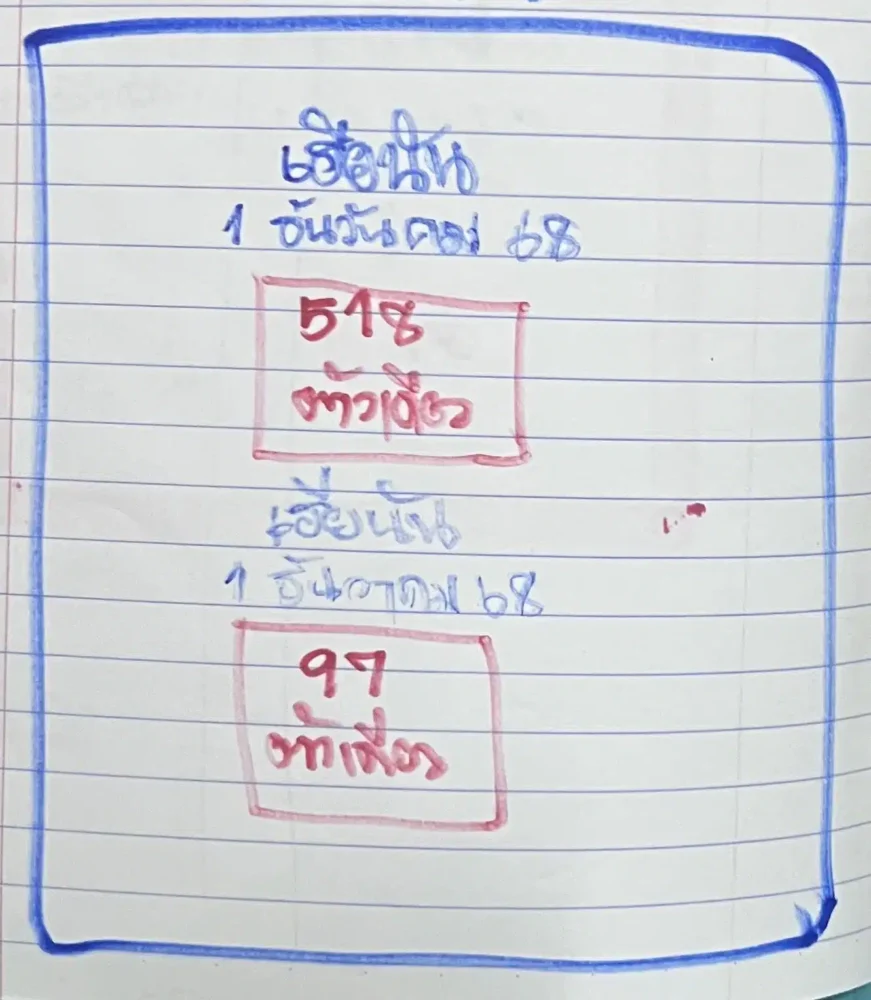 เฮียนัน
1 ธันวาคม 68
518
ตัวเดียว
เฮียนัน
1 ธันวาคม 68
97
ตัวเดียว